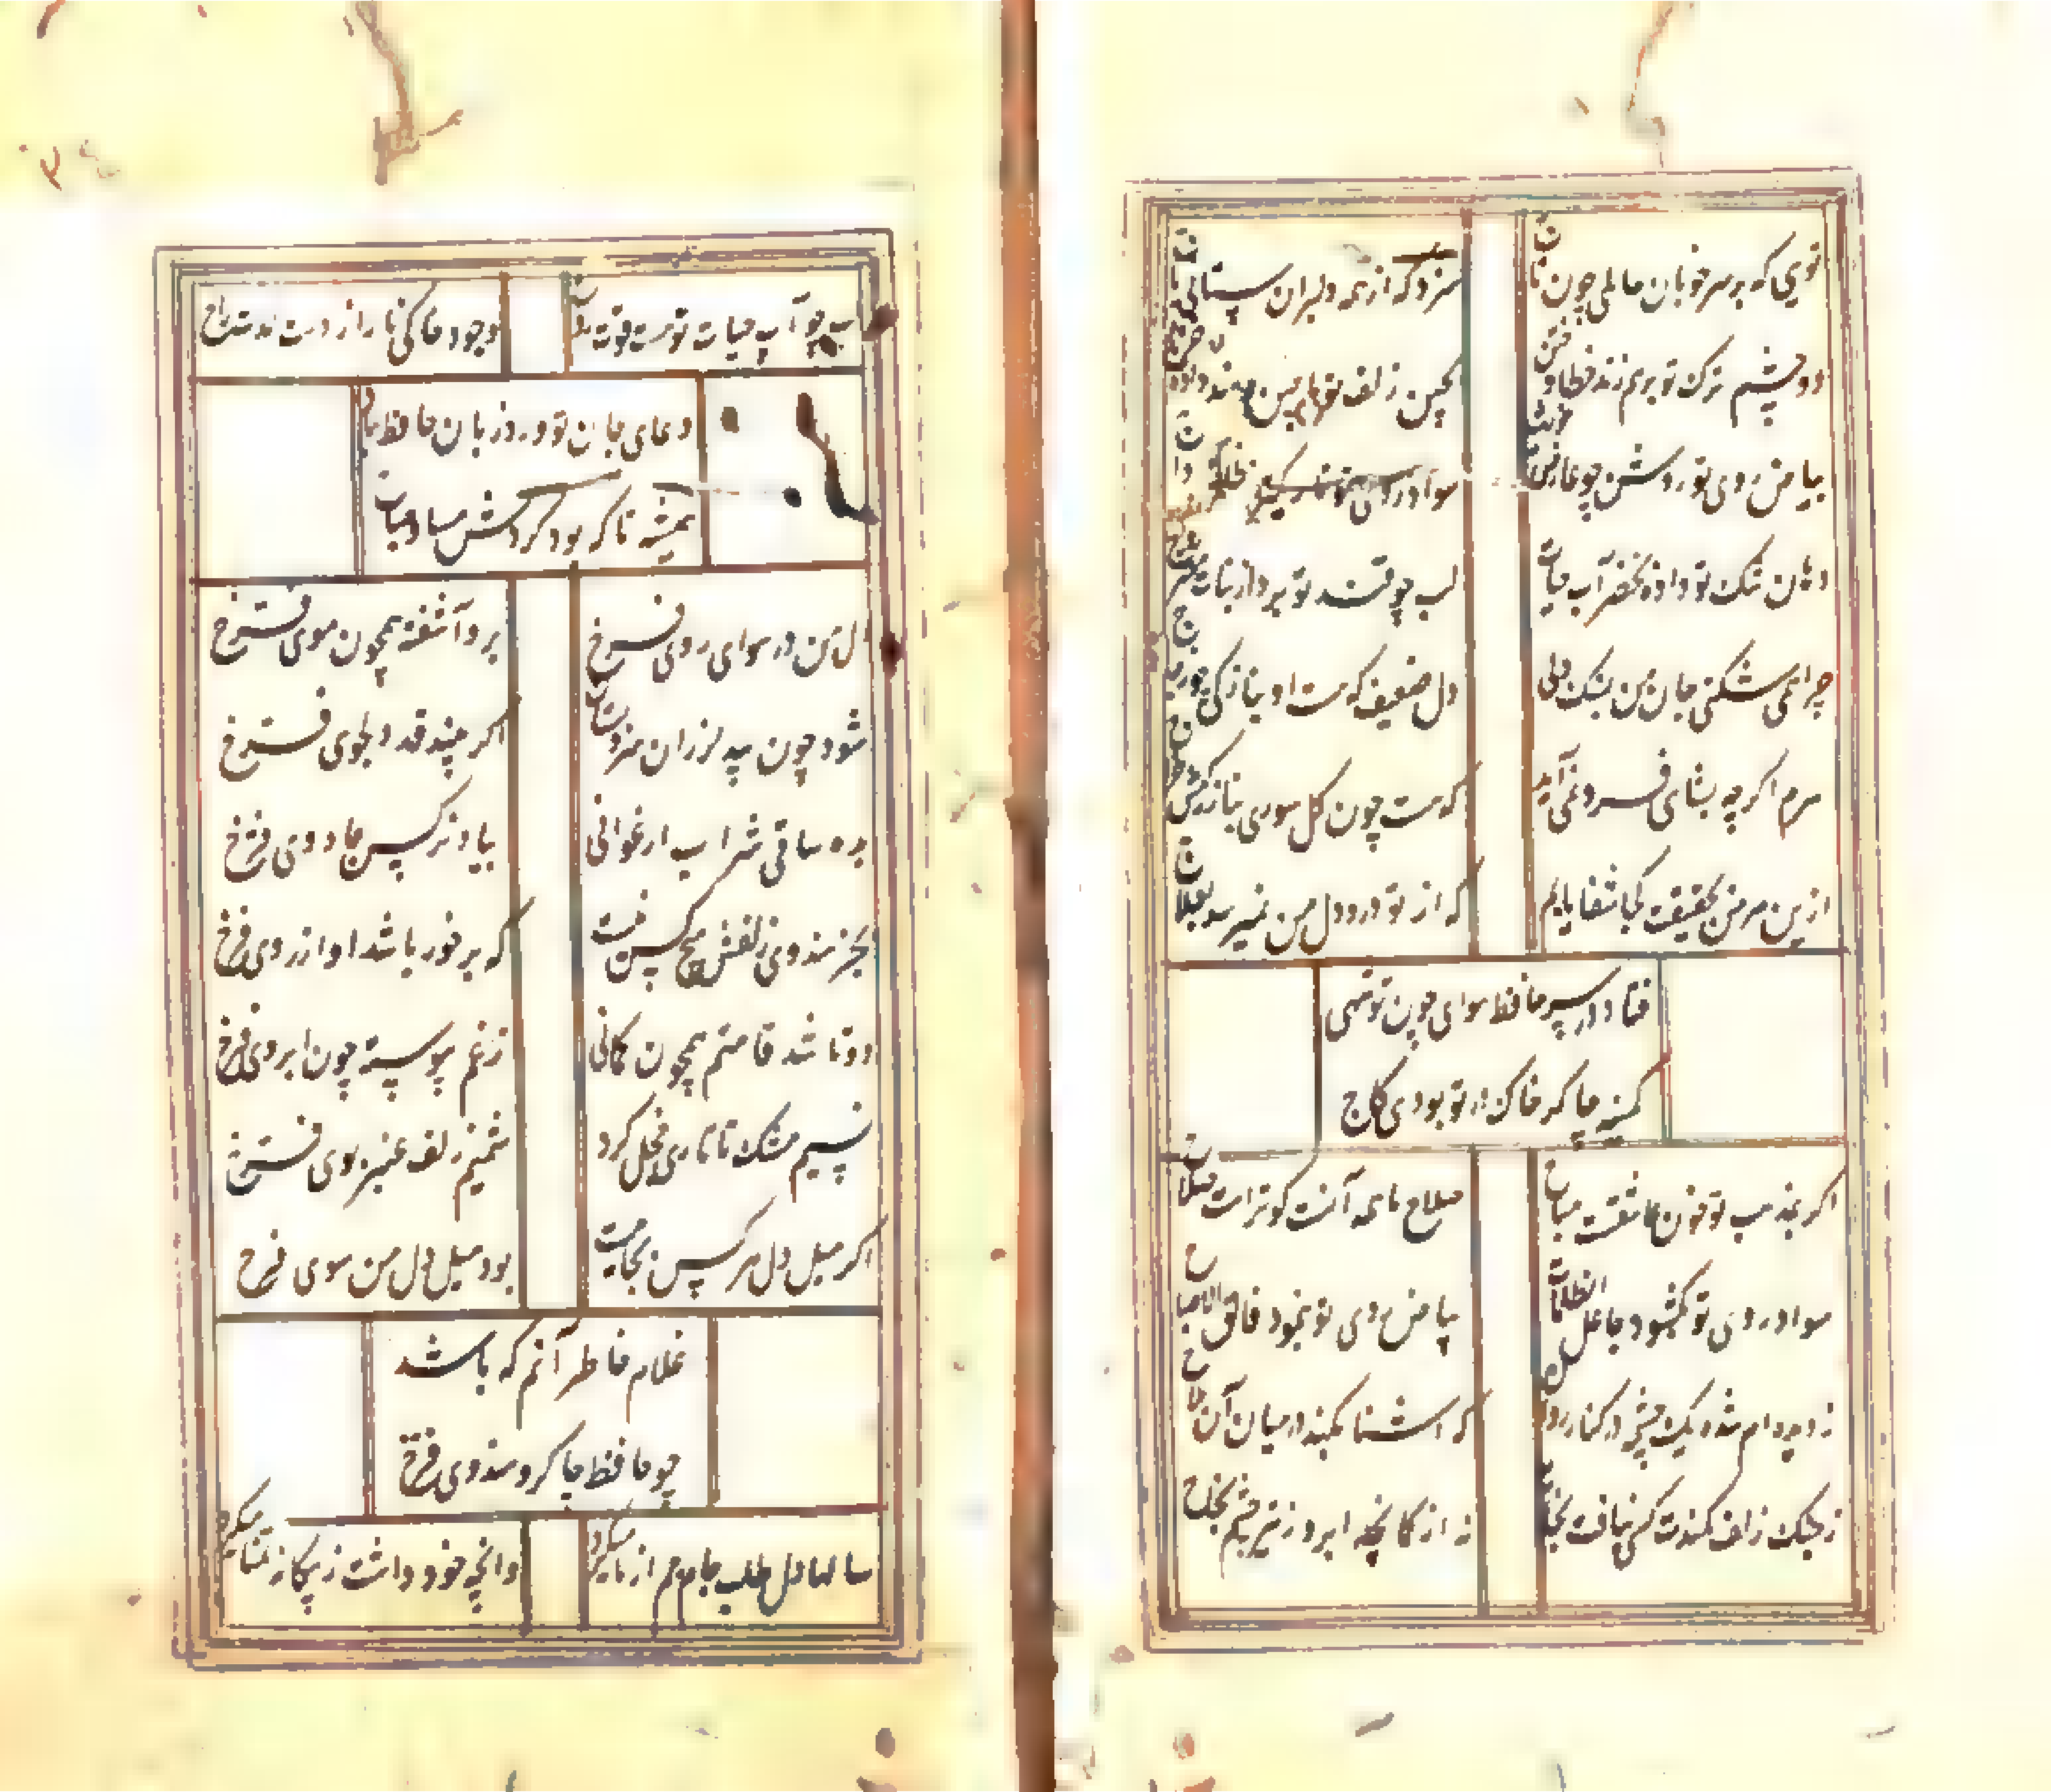 تویی که بر سر خوبان عالمی چون تاج
سزد که از همه دلبران ستانی باج
دو چشم ترک تو برهم زند خطا و ختن
بچین زلف تو ماچین و هند داده خراج
بیاض روی تو روشن چو عارض
سواد
دهان تنک تو داده بخضر آب حیات
لب چو قند تو برد از نبات مصر رواج
چرا همی شکنی جان من بسنک دلی
دل ضعیف که هست او بنازکی چو زجاج
سرم اکرچه بشاهی فرو نمی آید
که هست چون کل سوری بناز
ازین مرض بحقیقت کجا شفا یابم
که از تو درد دل من نمیرسد بعلاج
فتاد در سر حافظ هوای چون تو شهی
کمینه چاکر خاک در تو بودی کاج
اکر بمذهب تو خون عاشقست مباح
صلاح ما همه آنست کو تراست صلاح
سواد روی تو بکشود جاعل الظلمات
بیاض روی تو بنمود فالق الاصباح
ز دیده ام شده یک چشمه در کنار روان
که اشنا نکند در میان آن ملاح
ز چنک زلف کمندت کسی نیافت نجات
نه از کمانچه ابرو ز تیر چشم نجاح
لب چو آب حیات تو هست قوت
وجود خاکی ما را از دست
دعای جان تو ورد زبان حافظ باد
همیشه تا که بود کردش مسا و صباح
دل من در هوای روی فرخ
بود آشفته همچون موی فرخ
شود چون بید لرزان سرو بستان
اکر بیند قد دلجوی فرخ
بده ساقی شراب ارغوانی
بیاد نرکس جادوی فرخ
بجز هندوی زلفش هیچ کس نیست
که برخوردار باشد او از روی فرخ
دوتا شد قامتم همچون کمانی
ز غم پیوسته چون ابروی فرخ
نسیم مشک تاتاری خجل کرد
شمیم زلف عنبر بوی فرخ
اکر میل دل هر کس بجاییست
بود میل دل من سوی فرخ
غلام خاطر آنم که باشد
چو حافظ چاکر و هندوی فرخ
سالها دل طلب جام جم از ما میکرد
وانچه خود داشت ز بیکانه تمنا میکرد